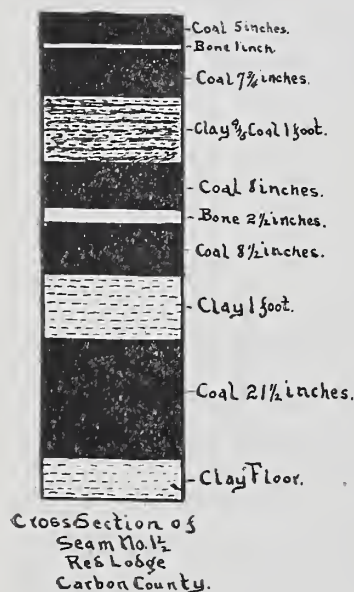 Coal 5inches.
Bone 1inch.
Coal 7¾inches.
Clay & Coal 1 foot.
Coal 8inches.
Bone 2½inches.
Coal 8½inches.
Clay 1 foot.
Coal 21½ inches.
Clay Floor.
Cross Section of
Seam No.1½
Red Lodge
Carbon County.